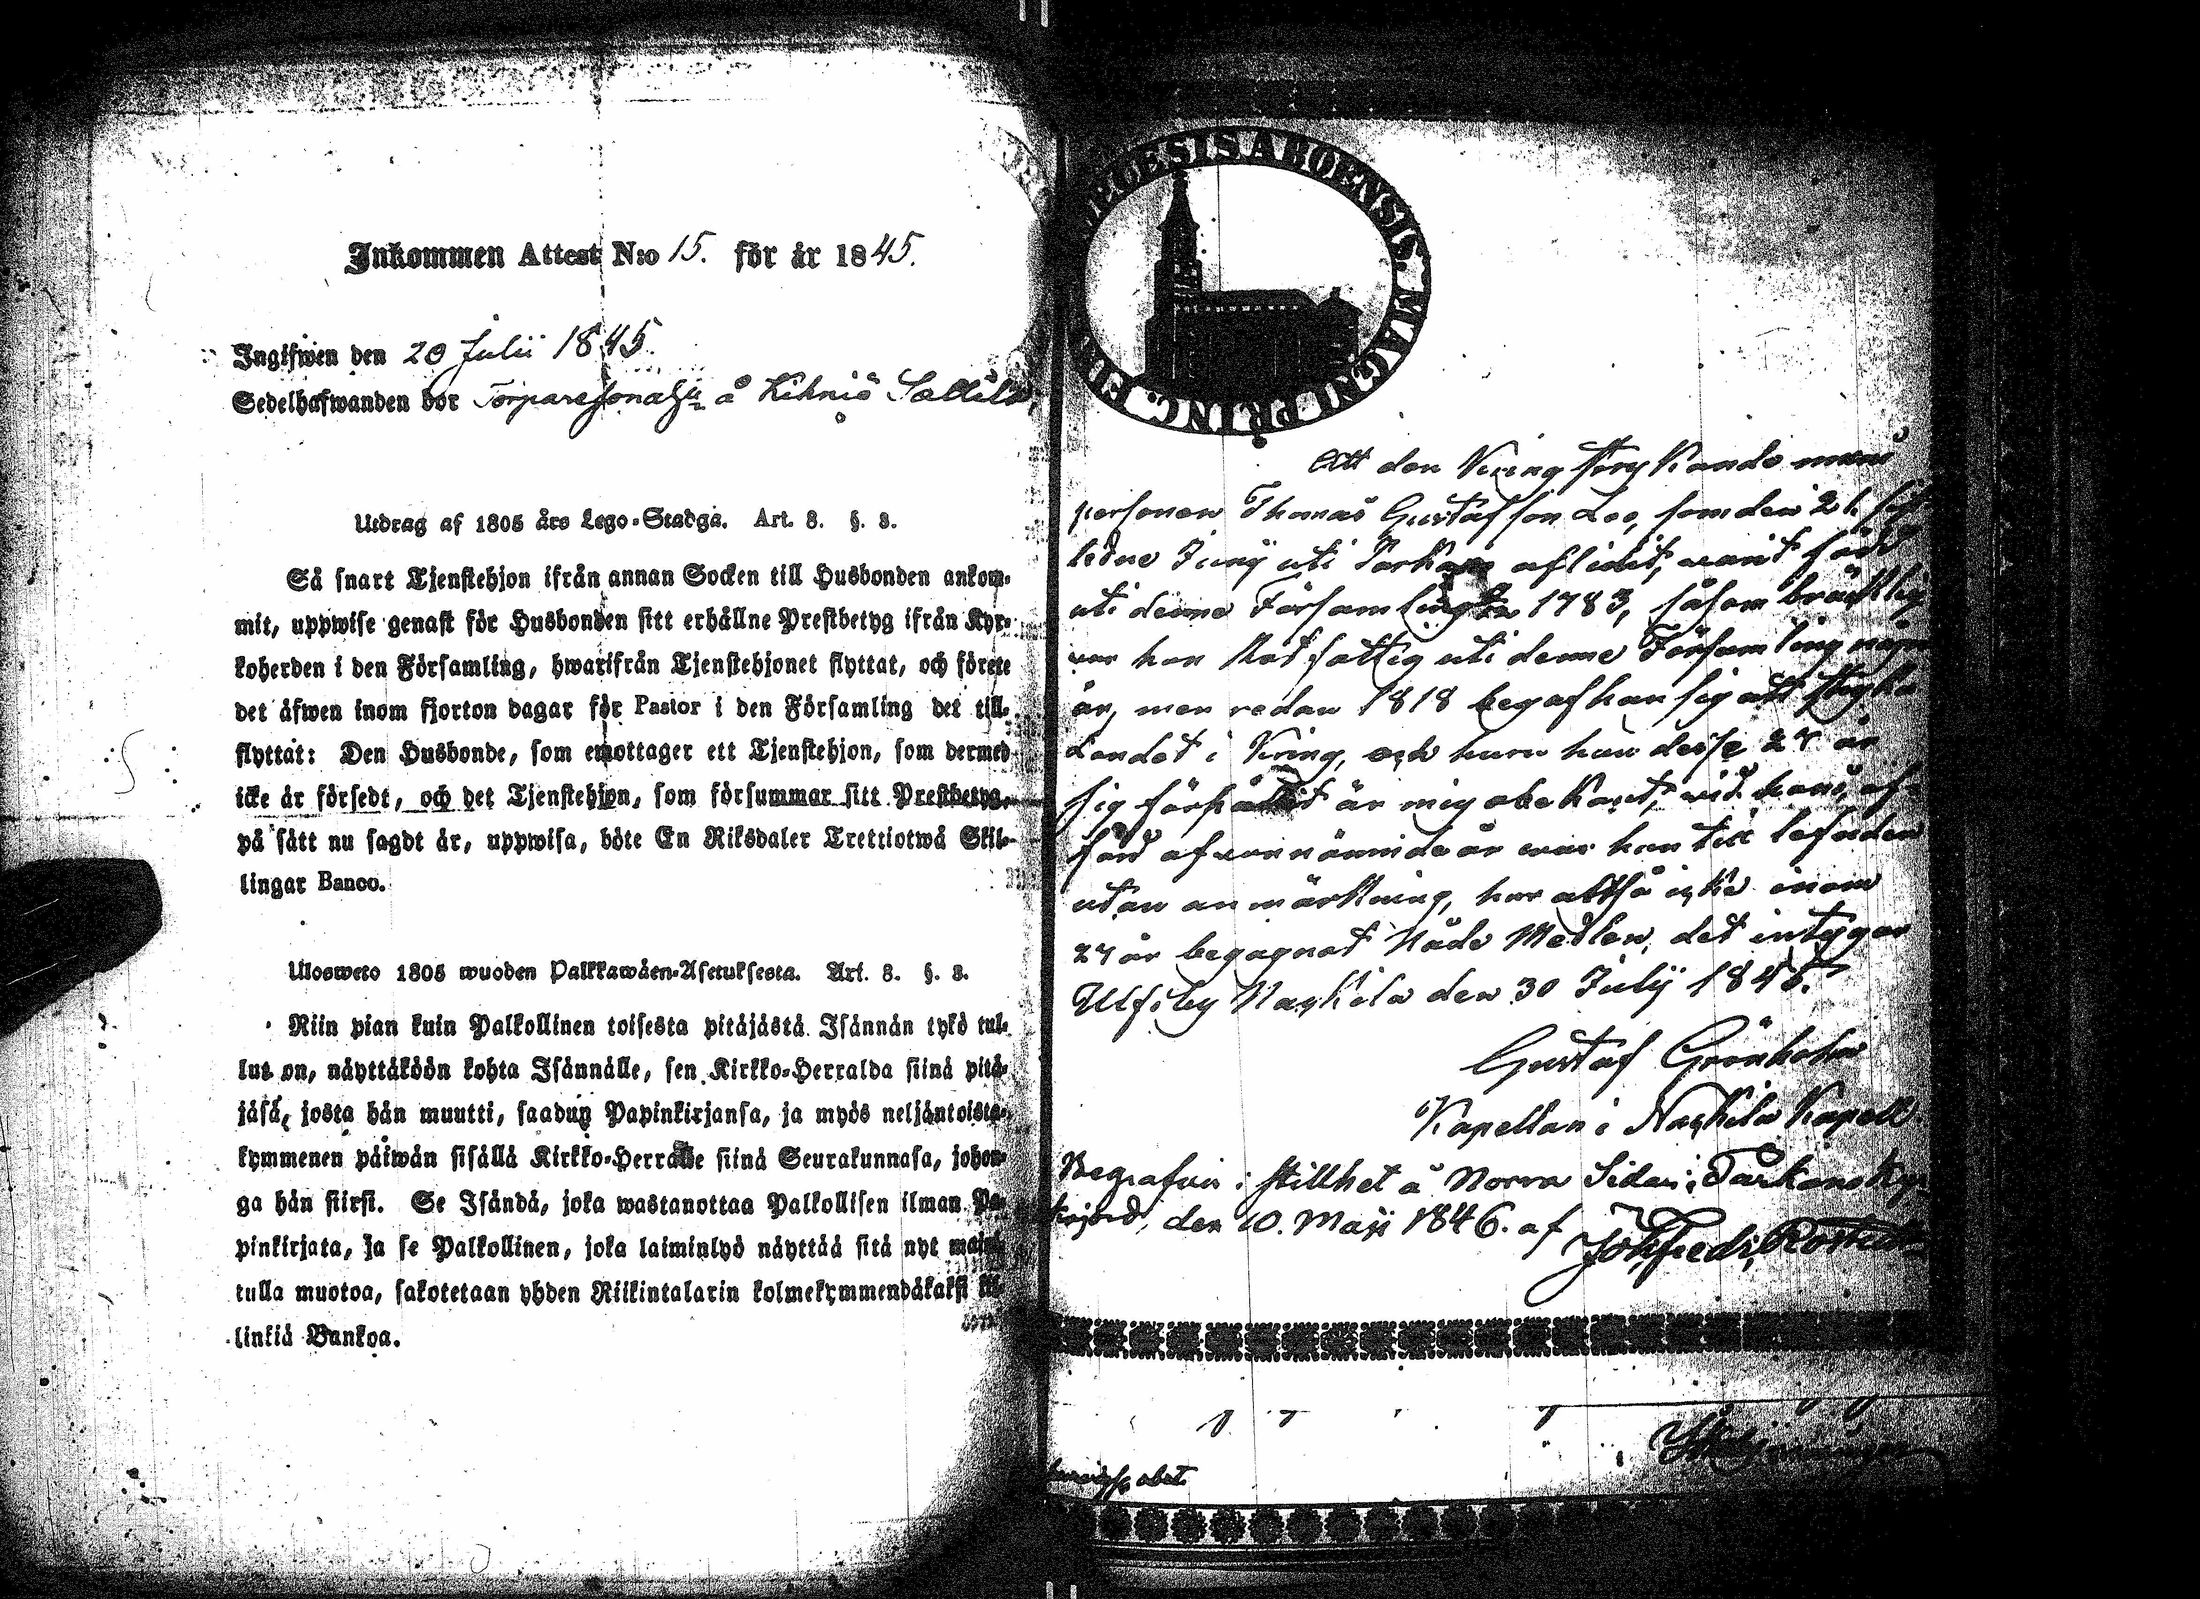 Inkommen Attest N:o 15. för år 1845.
Ingifwen den 20 Julii 1845.
Sedelhafwanden bor Torparesonahu å Kihniö
Utdrag af 1805 års Lego-Stadga. Art. 8. §. 3.
Så snart Tjenstehjon ifrån annan Socken till Husbonden ankom-
mit, uppwise genast för Husbonden sitt erhållne Prestbetyg ifrån Kyr-
koherden i den Församling, hwarifrån Tjenstehjonet flyttat, och förete
det äfwen inom fjorton dagar för Pastor i den Församling det till-
flyttat: Den Husbonde, som emottager ett Tjenstehjon, som dermed
icke är försedt, och det Tjenstehjon, som försummar sitt Prestbetyg,
på sätt nu sagdt är, uppwisa, böte En Riksdaler Trettiotwå Skil-
lingar Banco.
Ulosweto 1805 wuoden Palkkawäen-Asetuksesta. Art. 8. §. 3.
Niin pian kuin Palkollinen toisesta pitäjästä Isännän tykö tul-
lut on, näyttäköön kohta Isännälle, sen Kirkko-Herralda siinä pitä-
jäsä, josta hän muutti, saadun Papinkirjansa, ja myös neljäntoista-
kymmenen päiwän sisällä Kirkko-Herralle siinä Seurakunnasa, johon-
ga hän siirsi. Se Isändä, joka wastanottaa Palkollisen ilman Pa-
pinkirjata, ja se Palkollinen, joka laiminlyö näyttää sitä nyt mainit-
tulla muotoa, sakotetaan yhden Riikintalarin kolmekymmendäkaksi kil-
linkiä Bankoa.
ABOENSIS. MAGNI PRINC.
Att den kring strykande mans
personen Thomas Gustafsson Loo, som den 21 sist
ledne Junij uti Parkano aflidit, warit född
uti denne Församling 1783, såsom bräcklig
war han Rotfattig uti denne Församling några
år, men redan 1818 begaf han sig att stryka
Landet i kring, och huru han desse 27 år
sig förhållit är mig obekant, wid hans af-
färd afwannämnde år war han till lefnaden
utan anmärkning, har alltså icke inom
27 år begagnat Nåde Medlen, det intygar
Ulfsby Nackila den 30 Julij 1845.
Gustaf Grönholm
Kapellan i Nackila Kapell
Begrafwen i stillhet å Norra Sidan i Parkano Kyr-
den 10. Maji 1846. af